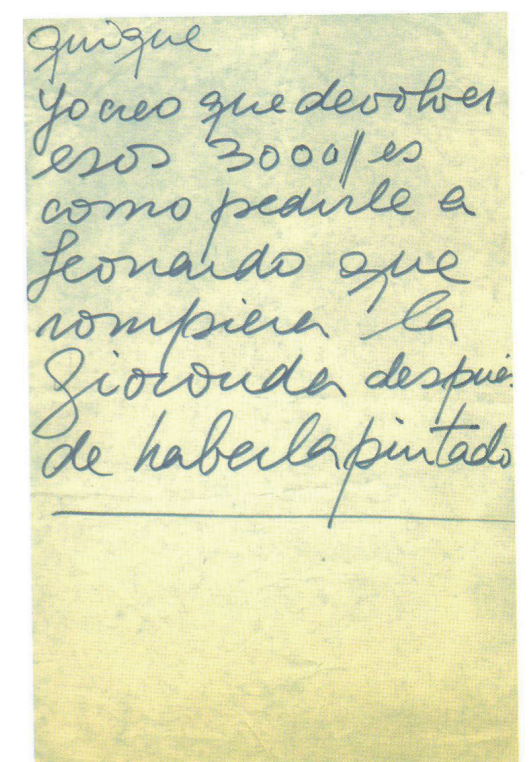 quique
yo creo que devolver
esos 3000// es
como pedirle a
Leonardo que
rompiera la
Gioconda despué
de haberla pintado